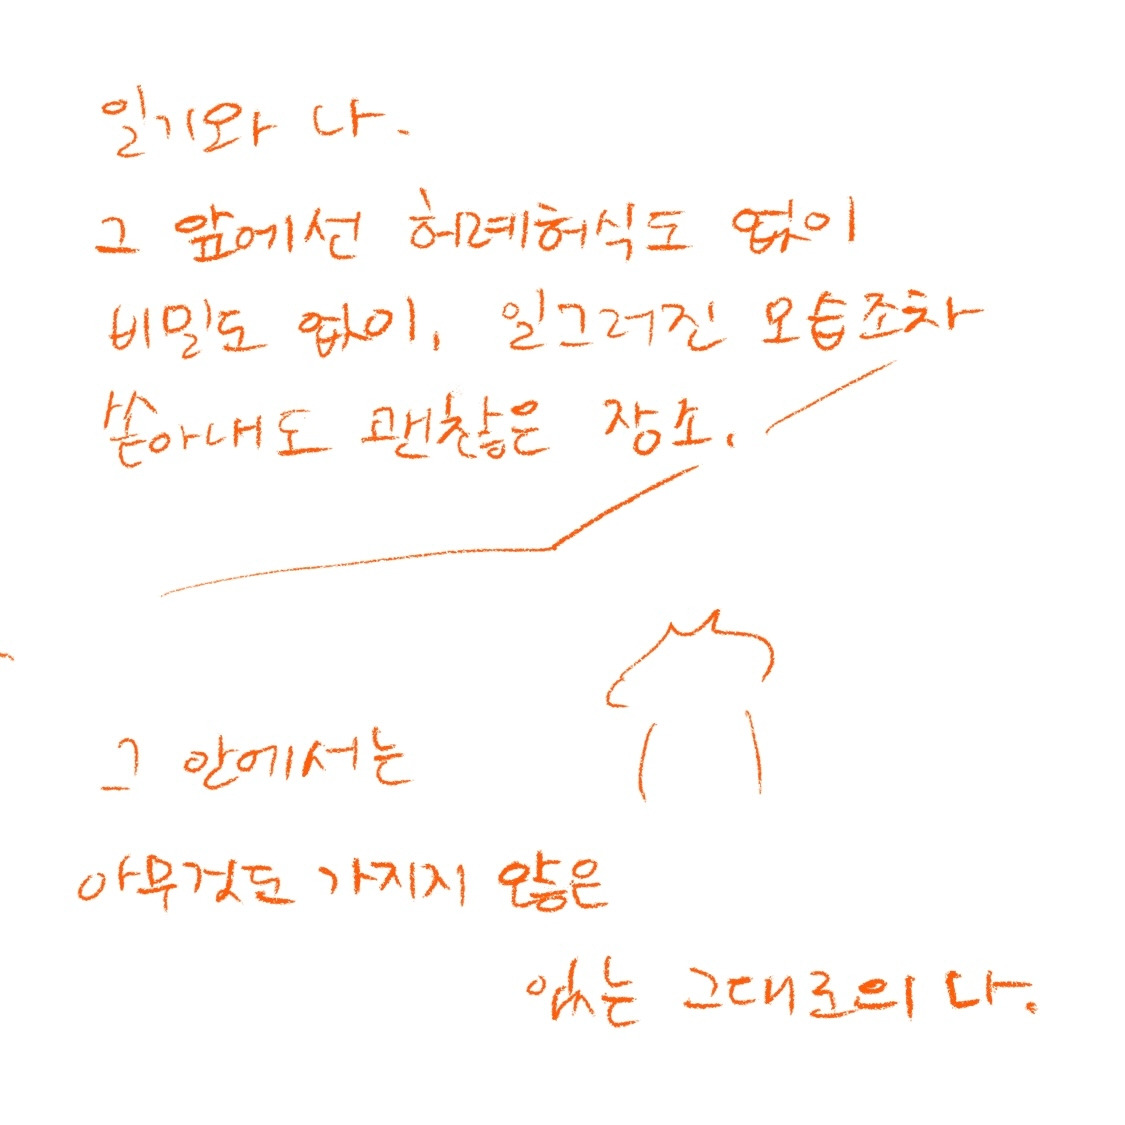 일기와 나.
그 앞에선 허례허식도 없이
비밀도 없이, 일그러진 모습조차
쏟아내도 괜찮은 장소.
그 안에서는
아무것도 가지지 않은
있는 그대로의 나.